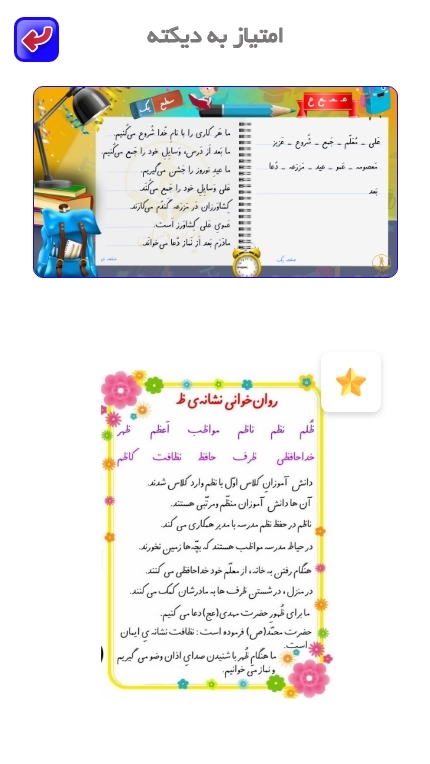 امتیاز به دیکته
سطح یک
ع ـعـ ـع ع
عَلی - مُعَلّم - جَمع - شُروع - عَزیز
مَعصومه - عَمو - عید - مَزرَعه - دُعا
بَعد
صفحه یک
ما هَر کاری را با نامِ خُدا شُروع می‌کُنیم.
ما بَعد اَز دَرس، وَسایِلِ خود را جَمع می‌کُنیم.
ما عیدِ نوروز را جَشن می‌گیریم.
عَلی وَسایِلِ خود را جَمع می‌کُنَد.
کِشاوَرزان دَر مَزرَعه گَندُم می‌کارَند.
عَموی عَلی کِشاوَرز اَست.
مادَرَم بَعد اَز نَماز دُعا می‌خوانَد.
صفحه دو
روان‌خوانی نشانه‌ی ظ
ظُلم نظم ناظم مواظب اَعظم ظهر
خداحافظی ظرف حافظ نظافت کاظم
دانش آموزانِ کلاس اوّل با نظم وارد کلاس شدند.
آن ها دانش آموزان منظّم و مرتّبی هستند.
ناظم در حفظ نظم مدرسه با مدیر همکاری می کند.
در حیاط مدرسه مواظب هستند که بچّه‌ها زمین نخورند.
هنگام رفتن به خانه، از معلّم خود خداحافظی می کنند.
در منزل، در شستن ظرف ها به مادرشان کمک می کنند.
ما برای ظُهورِ حضرت مهدی(عج) دعا می کنیم.
حضرت محمّد(ص) فرموده است: نظافت نشانه یِ ایمان است.
ما هنگام ظُهر با شنیدن صدایِ اذان وضو می گیریم
و نماز می خوانیم.